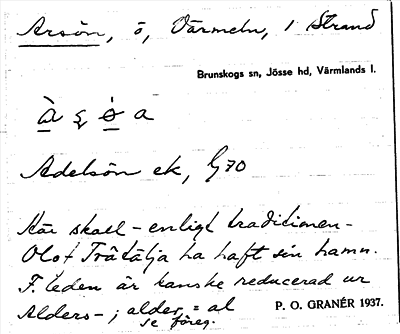 Arsön, ö, Värmeln, 1 Strand
Brunskogs sn, Jösse hd, Värmlands l.
Adelsön ek, G70
Här skall – enligt traditionen –
Olof Trätälja ha haft sin hamn.
F.leden är kanske reducerad ur
Alders- ; alder = al
se föreg.
P. O. GRANÉR 1937.